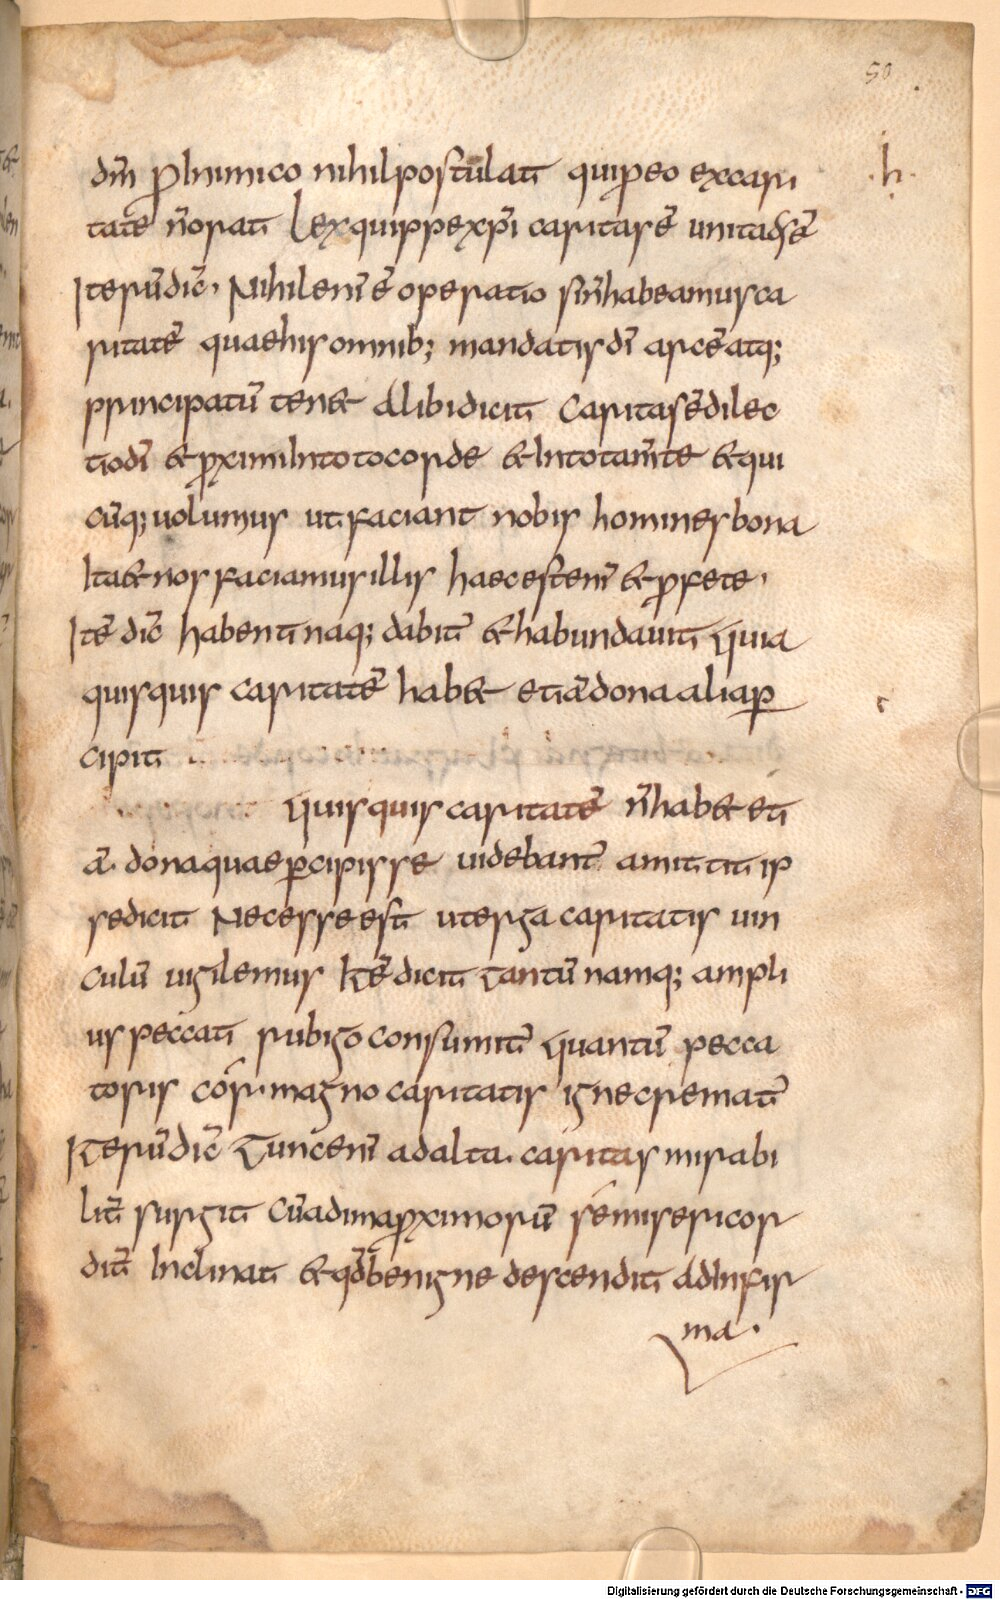 50
·h·
dm̄ ꝓ Inimico nihil postulat qui ꝓ eo ex cari
tate n̄ orat Lex quippe xp̄i caritas ē unitas ē
Iterū dic̄. Nihil enī ē operatio sin̄ habeamus ca
ritatē quae his omnib; mandatis dī arcē atq;
principatū ten& Alibi dicit Caritas ē dilec
tio dī & ꝓximi In toto corde & In tota m̄te & qui
cūq; uolumus ut faciant nobis homines bona
Ita & nos faciamus illis haec est enī & ꝓfete.
Itē dic̄ habenti naq; dabit̄ & habundauit Quia
quisquis caritatē hab& etiā dona alia ꝑ
cipit
Quisquis caritatē n̄ hab& eti
ā dona quae ꝑcipisse uidebant̄ amittit ip
se dicit Necesse est ut erga caritatis uin
culū uigilemus Itē dicit Tantū namq; ampli
us peccati rubigo consumit̄ Quantū pecca
toris cor magno caritatis igne crematur̄
Iterū dic̄ Tunc enī ad alta caritas mirabi
lit̄ surgit cū ad ima ꝓximorū sē misericor
dit̄ Inclinat & qd̄ benigne descendit ad Infir
ma.
Digitalisierung gefördert durch die Deutsche Forschungsgemeinschaft - DFG